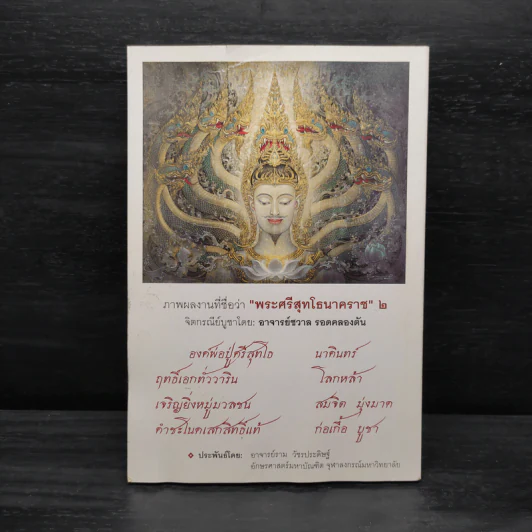 ภาพผลงานที่ชื่อว่า "พระศรีสุทโธนาคราช" ๒
จิตกรณีย์บูชาโดย: อาจารย์ชวาล รอดคลองตัน
องค์พ่อปู่ศรีสุทโธ นาคินทร์
ฤทธิ์เอกทั่ววาริน โลกหล้า
เจริญยิ่งหมู่มวลชน สมจิต มุ่งมาด
คำชะโนดเสกสิทธิ์แท้ ก่อเกื้อ บูชา
ประพันธ์โดย: อาจารย์ราม วัชรประดิษฐ์
อักษรศาสตร์มหาบัณฑิต จุฬาลงกรณ์มหาวิทยาลัย